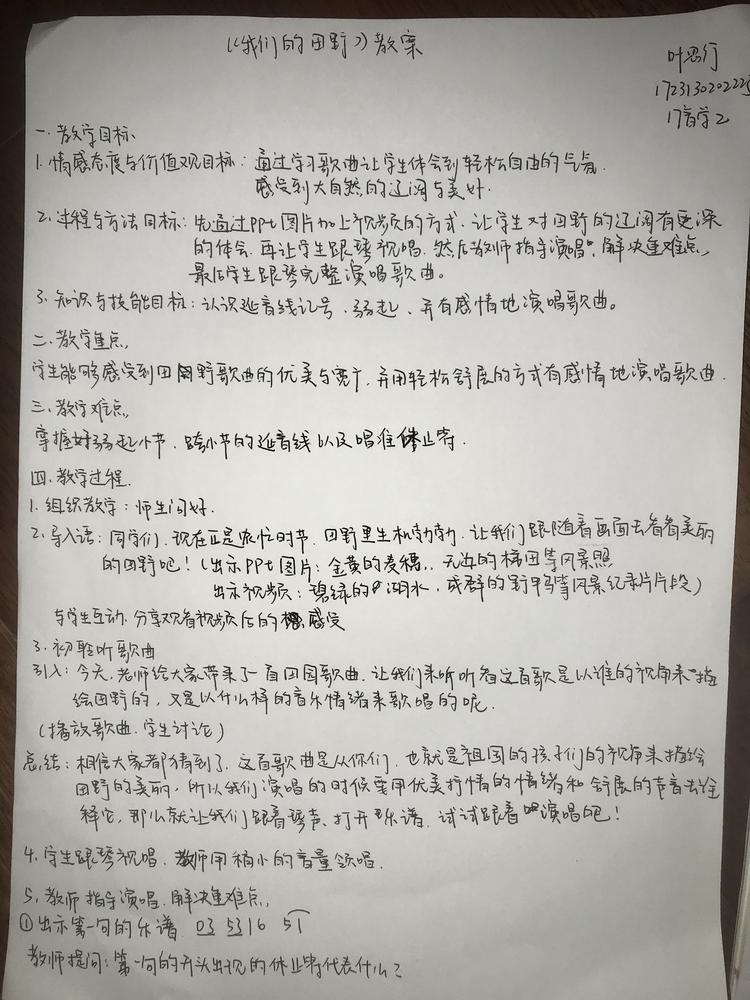 《我们的田野》教案
叶思行
1723130202225
17音学2
一.教学目标
1.情感态度与价值观目标：通过学习歌曲让学生体会到轻松自由的气氛.
感受到大自然的辽阔与美好.
2.过程与方法目标：先通过ppt图片加上视频的方式、让学生对田野的辽阔有更深
的体会.再让学生跟琴视唱.然后教师指导演唱.解决重难点,
最后学生跟琴完整演唱歌曲。
3.知识与技能目标：认识延音线记号、弱起、并有感情地演唱歌曲。
二.教学重点,
学生能够感受到田野歌曲的优美与宽广,并用轻松舒展的方式有感情地演唱歌曲.
三.教学难点,
掌握好弱起小节、跨小节的延音线以及唱准休止符.
四.教学过程.
1.组织教学：师生问好.
2.导入语：同学们、现在正是农忙时节.田野里生机勃勃、让我们跟随着画面去看看美丽
的田野吧！(出示PPt图片：金黄的麦穗、无边的梯田等风景照
出示视频：碧绿的湖水、成群的野鸭等风景纪录片片段)
与学生互动.分享观看视频后的感受
3.初聆听歌曲
引入：今天,老师给大家带来了一首田园歌曲.让我们来听听看这首歌是以谁的视角来描
绘田野的,又是以什么样的音乐情绪来歌唱的呢.
(播放歌曲.学生讨论)
总结：相信大家都猜到了,这首歌曲是从你们,也就是祖国的孩子们的视角来描绘
田野的美丽,所以我们演唱的时候要用优美抒情的情绪和舒展的声音去诠
释它,那么就让我们跟着琴声、打开乐谱、试试跟着演唱吧！
4.学生跟琴视唱.教师用稍小的音量领唱.
5.教师指导演唱.解决重难点,
①出示第一句的乐谱 03 5316 51
教师提问：第一句的开头出现的休止符代表什么？